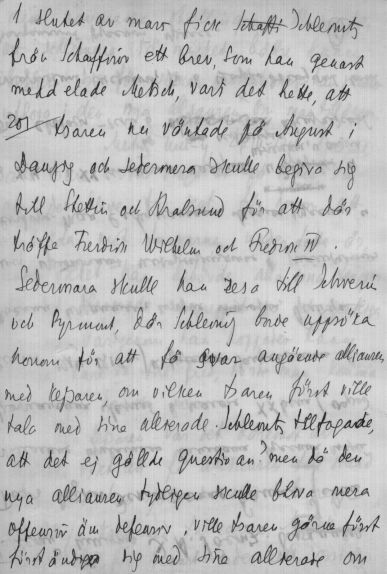 I slutet av mars fick Schaffi Schleunitz
från Schaffirov ett brev, som han genast
meddelade Metsch, vari det hette, att
201 tsaren nu väntade på August i
Danzig och sedermera skulle begiva sig
till Stettin och Stralsund för att där
träffa Fredrik Wilhelm och Fredrik IV.
Sedermera skulle han resa till Schwerin
och Pyrmont, där Schleunitz borde uppsöka
honom för att få svar angående alliansen
med kejsaren, om vilken tsaren först ville
tala med sina allierade. Schleunitz tillfogade,
att det ej gällde questio an? men då den
nya alliansen tydligen skulle bliva mera
offensiv än defensiv, ville tsaren gärna först
först sig med sina allierade om